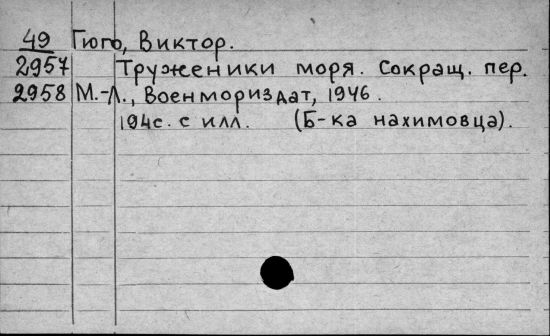 49 Гюго, Виктор.
2957 Труженики моря. Сокращ. пер.
2958 М.-Л., Военмориздат, 1946.
194с. с илл. (Б-ка нахимовца).